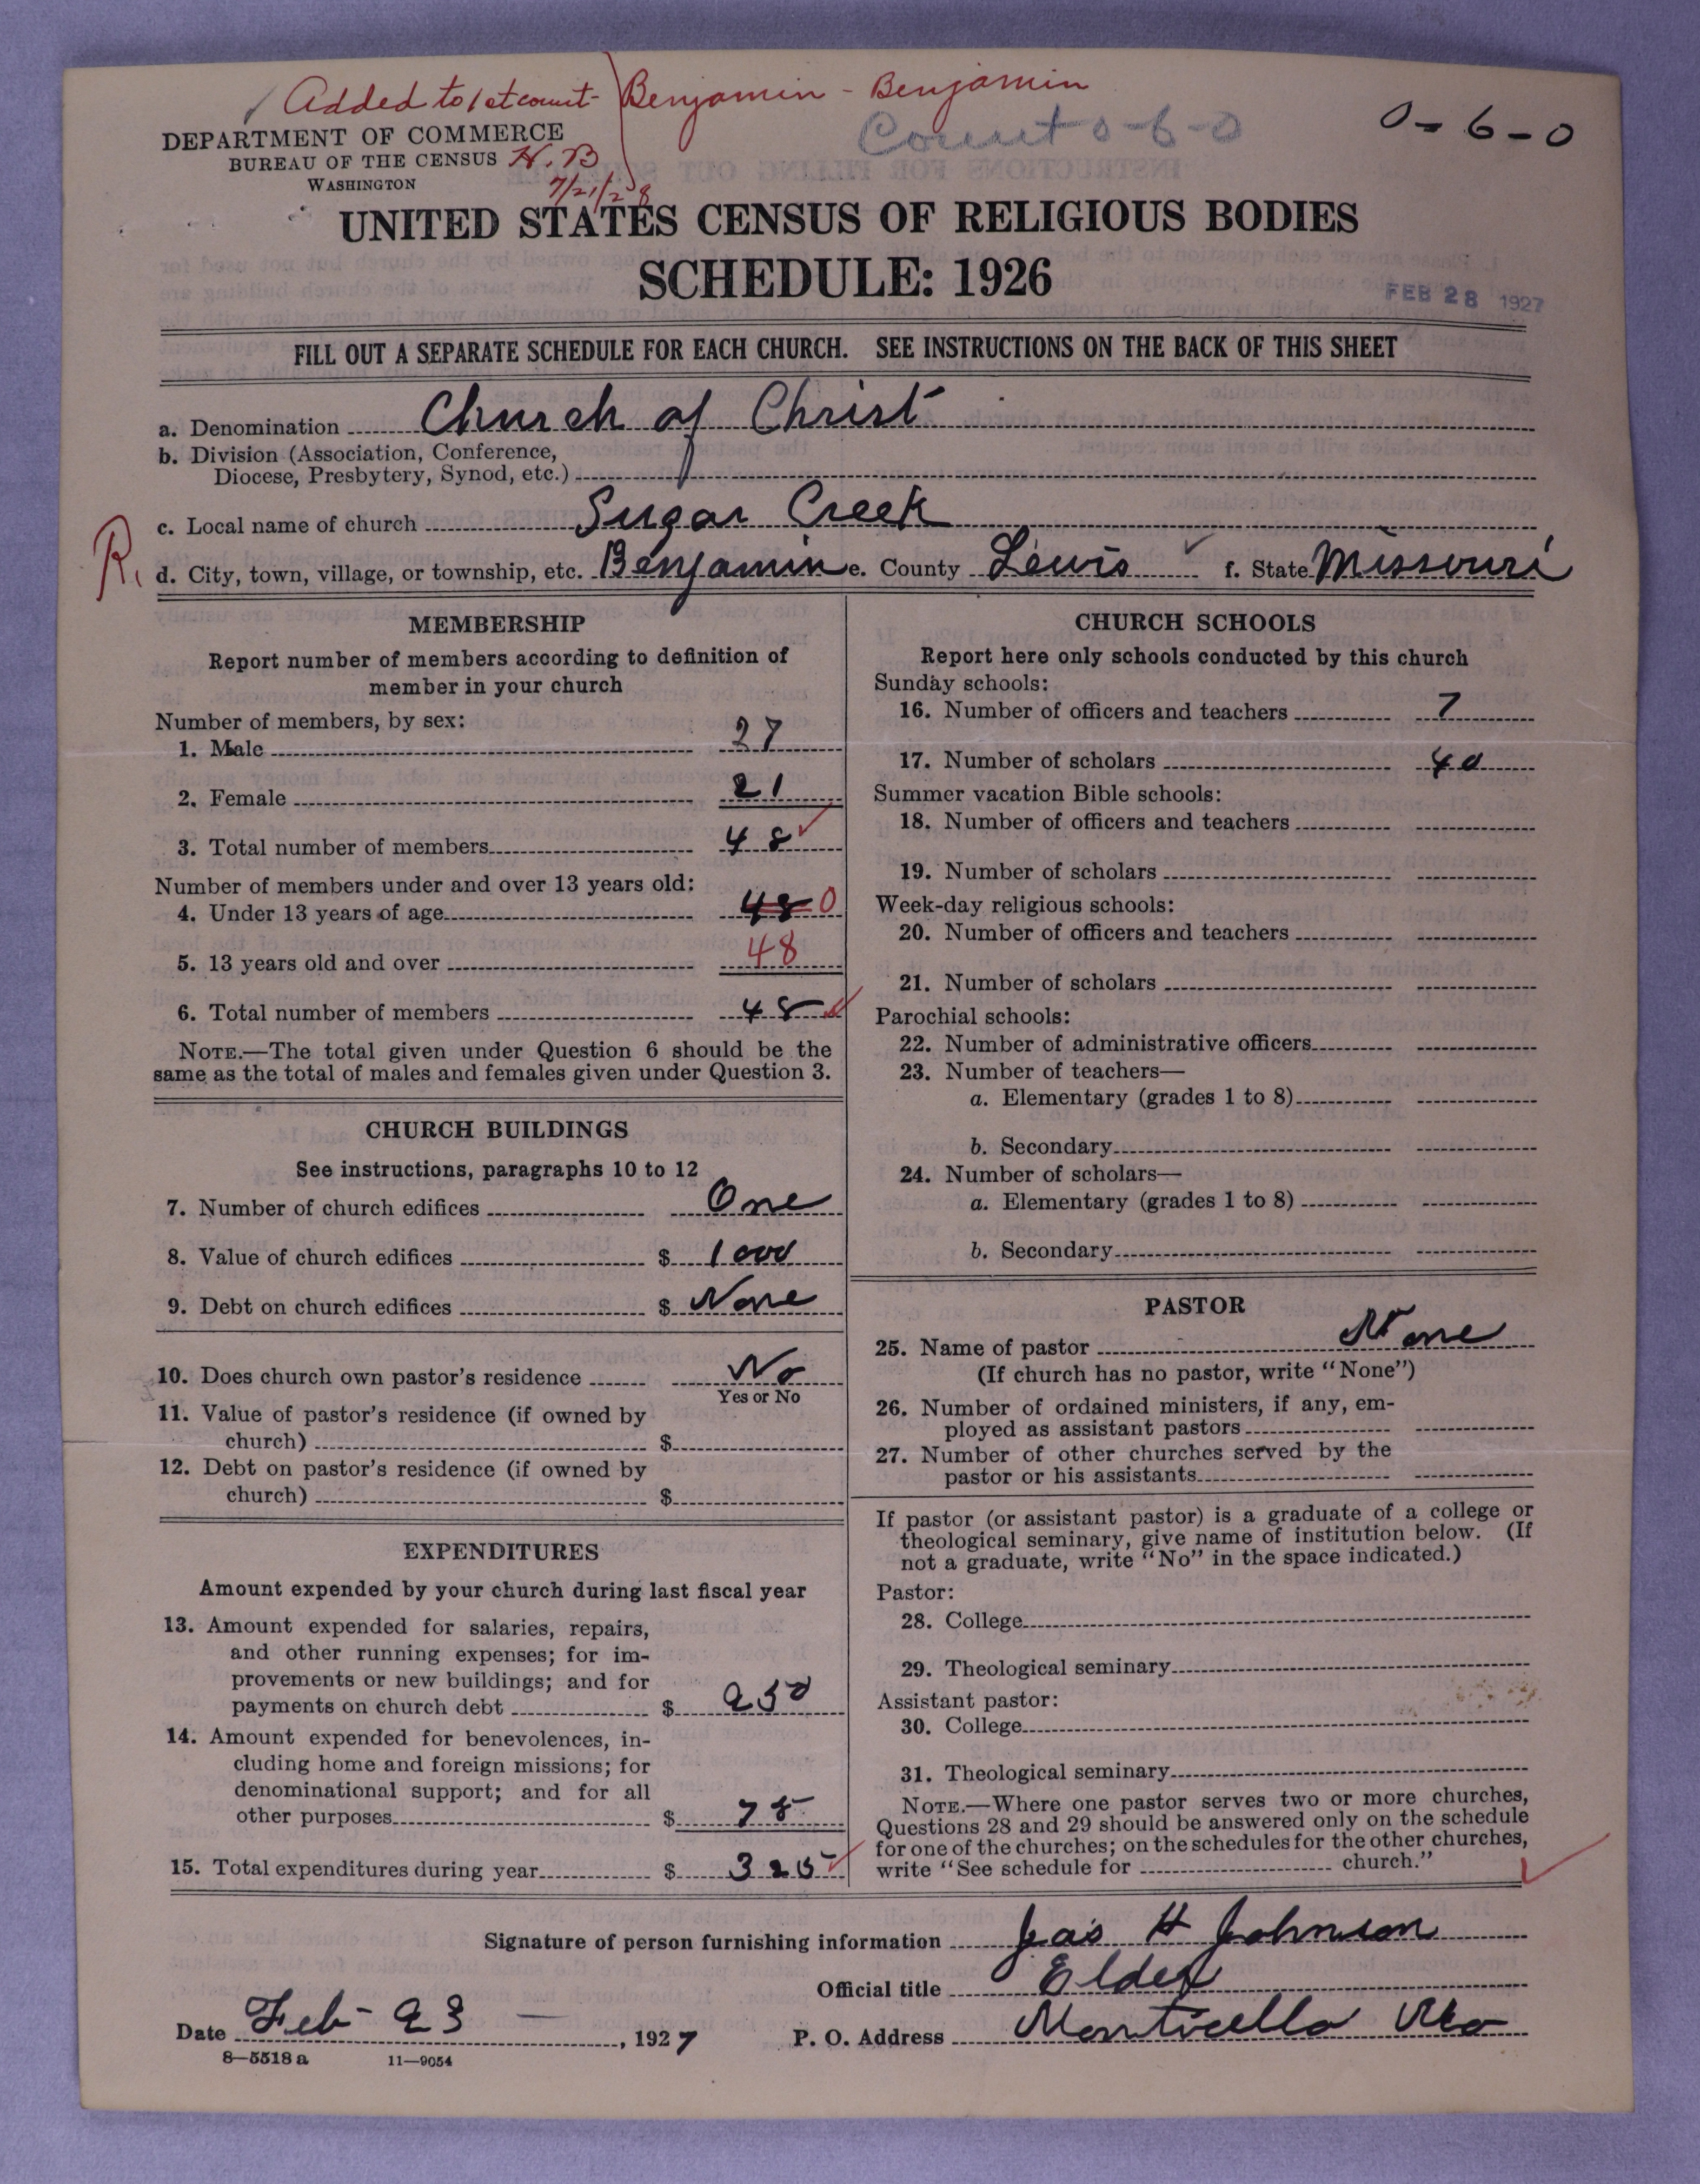 Added to 1st count- Benjamin - Benjamin
DEPARTMENT OF COMMERCE
Count 0-6-0
0-6-0
BUREAU OF THE CENSUS H.B
WASHINGTON
7/21/28
UNITED STATES CENSUS OF RELIGIOUS BODIES
SCHEDULE: 1926
FEB 28 1927
FILL OUT A SEPARATE SCHEDULE FOR EACH CHURCH. SEE INSTRUCTIONS ON THE BACK OF THIS SHEET
a. Denomination Church of Christ
b. Division (Association, Conference,
Diocese, Presbytery, Synod, etc.)
c. Local name of church Sugar Creek
R.
d. City, town, village, or township, etc. Benjamin e. County Lewis f. State Missouri
MEMBERSHIP
Report number of members according to definition of
member in your church
Number of members, by sex:
1. Male 27
2. Female 21
3. Total number of members 48
Number of members under and over 13 years old:
4. Under 13 years of age 48 0
5. 13 years old and over 48
6. Total number of members 48
NOTE.—The total given under Question 6 should be the
same as the total of males and females given under Question 3.
CHURCH BUILDINGS
See instructions, paragraphs 10 to 12
7. Number of church edifices One
8. Value of church edifices $ 1000
9. Debt on church edifices $ None
10. Does church own pastor's residence No
Yes or No
11. Value of pastor's residence (if owned by
church) $
12. Debt on pastor's residence (if owned by
church) $
EXPENDITURES
Amount expended by your church during last fiscal year
13. Amount expended for salaries, repairs,
and other running expenses; for im-
provements or new buildings; and for
payments on church debt $ 250
14. Amount expended for benevolences, in-
cluding home and foreign missions; for
denominational support; and for all
other purposes $ 75
15. Total expenditures during year $ 325
CHURCH SCHOOLS
Report here only schools conducted by this church
Sunday schools:
16. Number of officers and teachers 7
17. Number of scholars 40
Summer vacation Bible schools:
18. Number of officers and teachers
19. Number of scholars
Week-day religious schools:
20. Number of officers and teachers
21. Number of scholars
Parochial schools:
22. Number of administrative officers
23. Number of teachers—
a. Elementary (grades 1 to 8)
b. Secondary
24. Number of scholars—
a. Elementary (grades 1 to 8)
b. Secondary
PASTOR
25. Name of pastor None
(If church has no pastor, write "None")
26. Number of ordained ministers, if any, em-
ployed as assistant pastors
27. Number of other churches served by the
pastor or his assistants
If pastor (or assistant pastor) is a graduate of a college or
theological seminary, give name of institution below. (If
not a graduate, write "No" in the space indicated.)
Pastor:
28. College
29. Theological seminary
Assistant pastor:
30. College
31. Theological seminary
NOTE.—Where one pastor serves two or more churches,
Questions 28 and 29 should be answered only on the schedule
for one of the churches; on the schedules for the other churches,
write "See schedule for church."
Signature of person furnishing information Jas H Johnson
Official title Elder
Date Feb- 23 , 1927 P. O. Address Monticello Mo
8—5518 a 11—9054